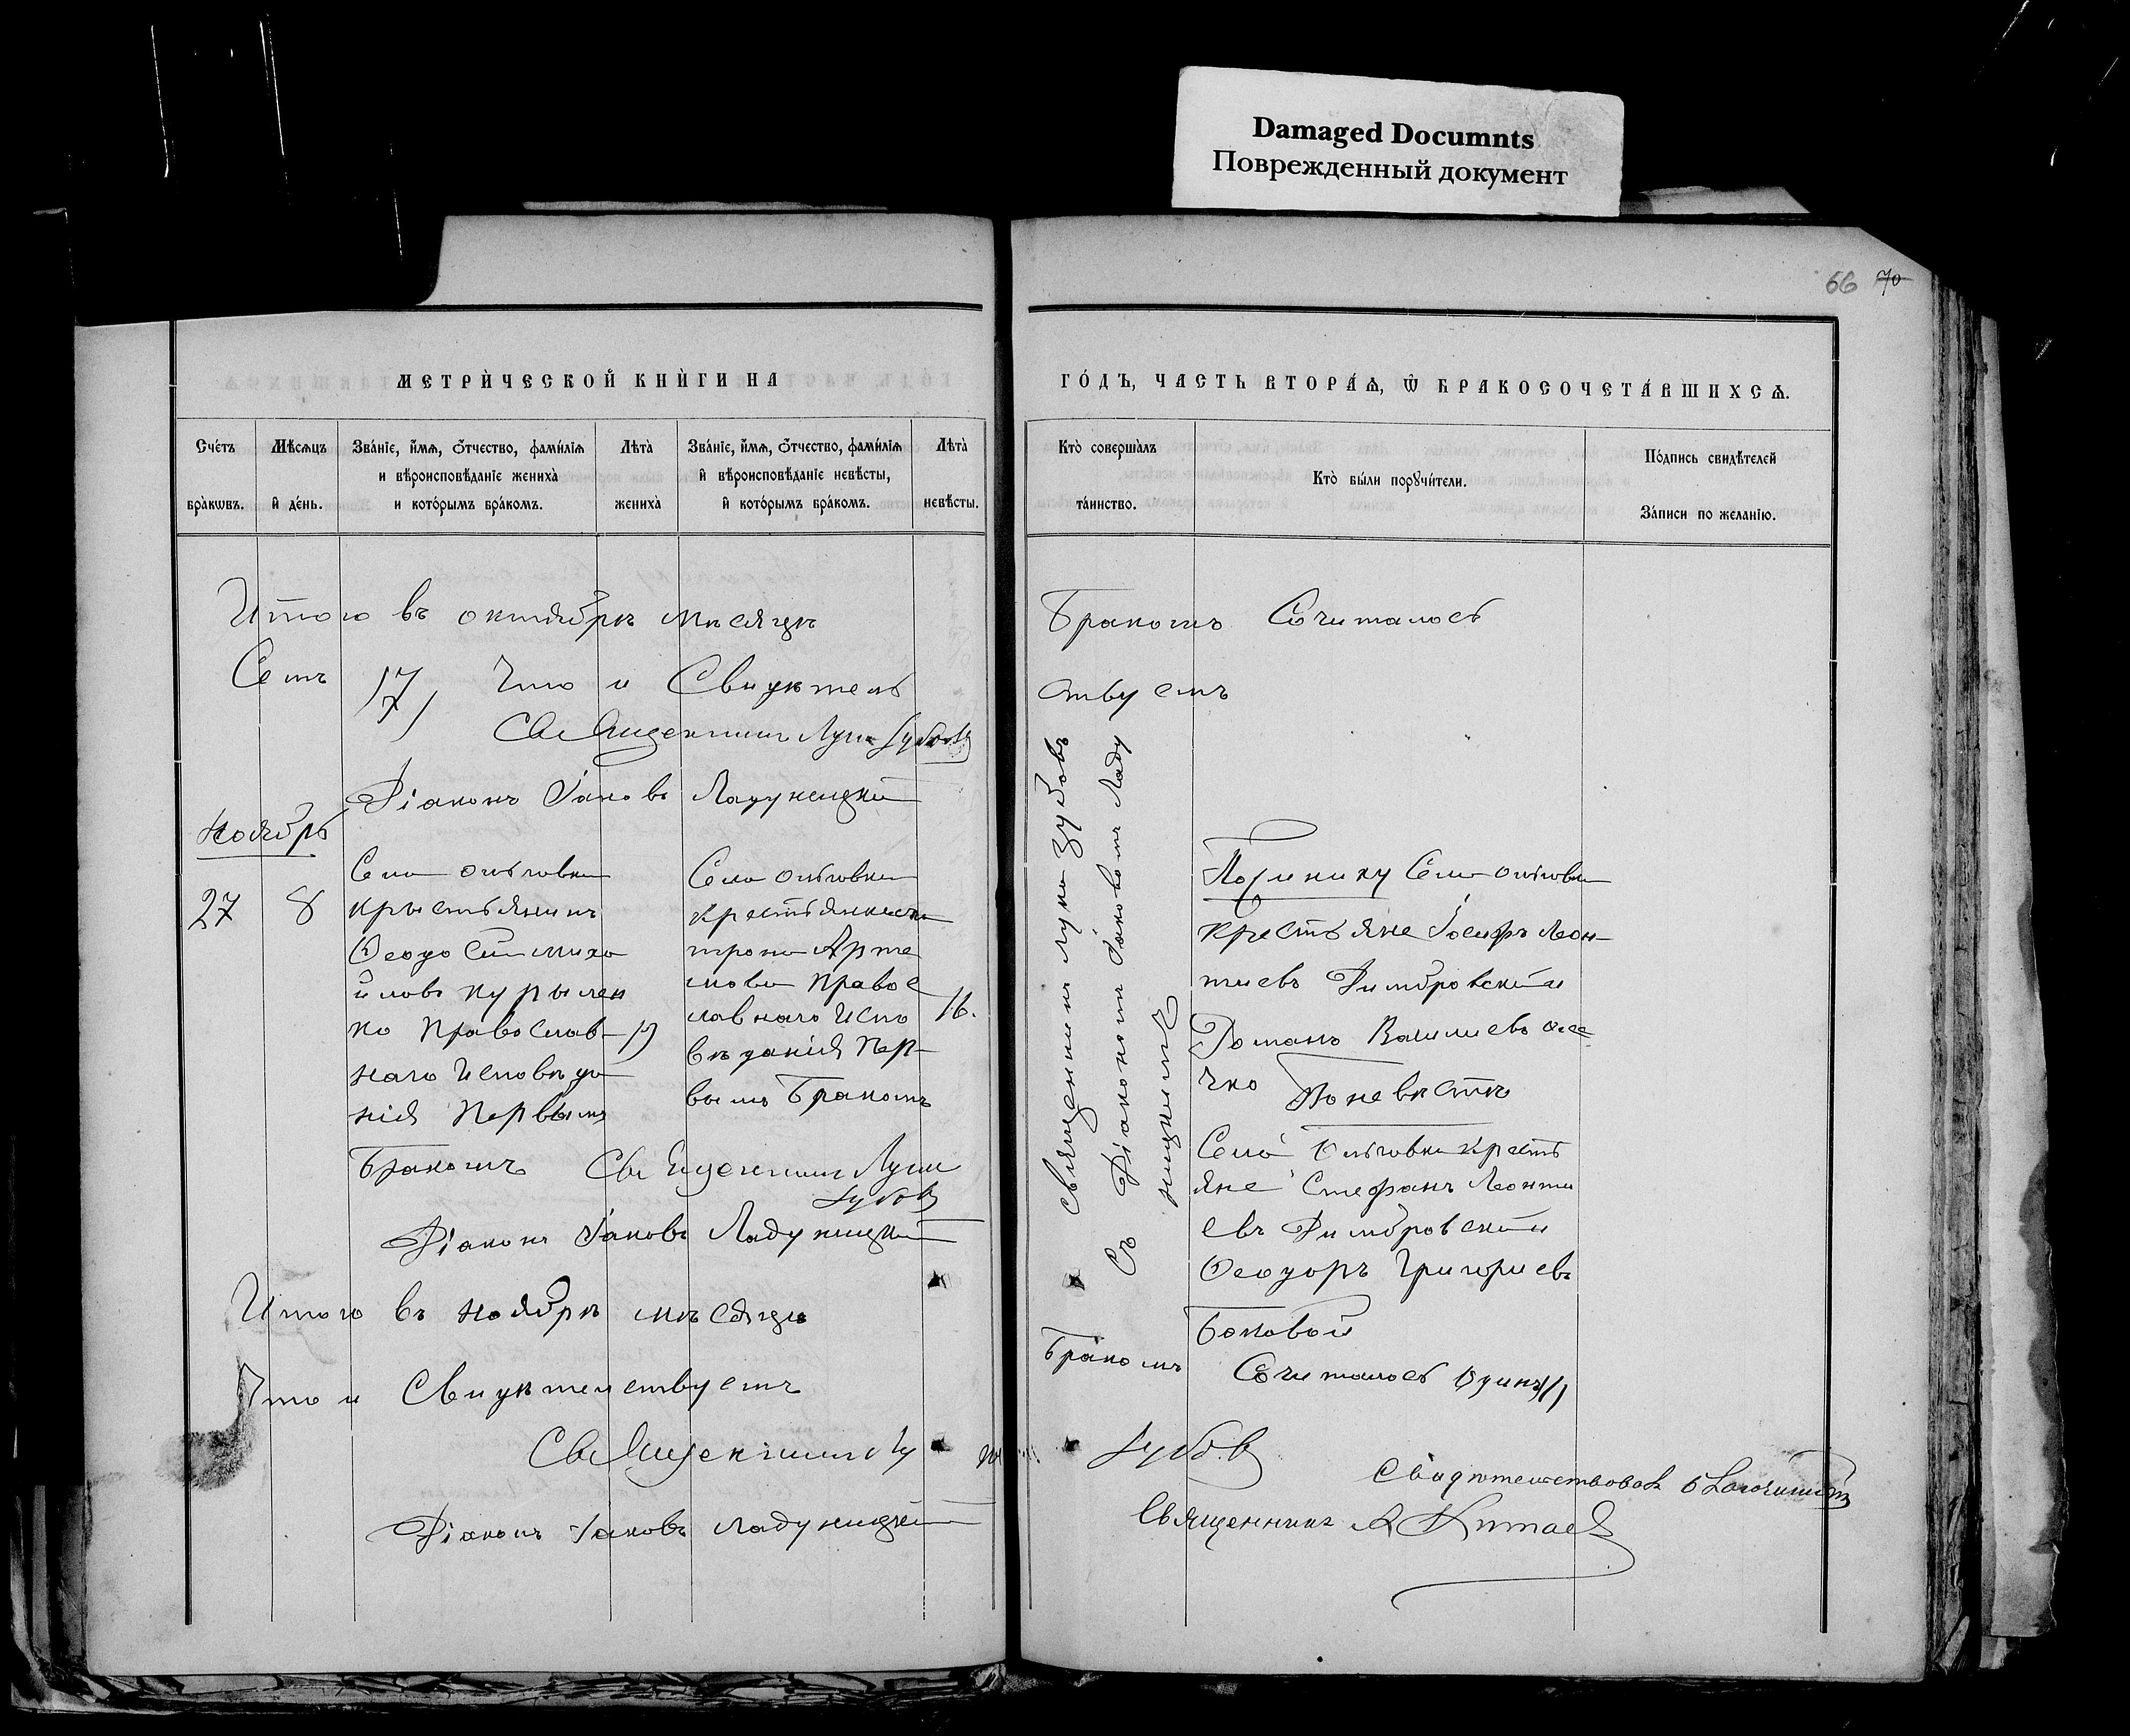 Damaged Documnts
Поврежденный документ
66 70
МЕТРИЧЕСКОЙ КНИГИ НА
Счетъ браковъ.
Мѣсяцъ и день.
Званіе, имя, отчество, фамилія и вѣроисповѣданіе жениха и которымъ бракомъ.
Лѣта жениха
Званіе, имя, отчество, фамилія и вѣроисповѣданіе невѣсты, и которымъ бракомъ.
Лѣта невѣсты.
Итого въ октябрѣ мѣсяцѣ
Семъ 7) Что и Свидѣтель
Священникъ Лука Зубовъ
Діаконъ Іаковъ Ладуницкій
Ноябрь
27
8
Села
крыстьянинъ
Ѳеодосій Миха
йловъ Курылен
ко Православ
наго Исповѣда
нія Первымъ
Бракомъ
19
Села
Крестьянкы
Арте
мова Правос
лавнаго Испо
вѣданія Пер
вымъ Бракомъ
16.
Священникъ Лука
Зубовъ
Діаконъ Іаковъ Ладуницкій
Итого въ ноябрѣ мѣсяцѣ
Что и Свидѣтельствуетъ
Священникъ Лу
Діаконъ Іаковъ Ладуницкій
ГОДЪ, ЧАСТЬ ВТОРАЯ, Ѡ БРАКОСОЧЕТАВШИХСЯ.
Кто совершалъ таинство.
Кто были поручители.
Подпись свидѣтелей Записи по желанію.
Бракомъ Сочиталось
ствуетъ
Священникъ Лука Зубовъ
Съ Діакономъ Іаковомъ Ладу
ницкимъ
По жениху Села
крестьяне Іосифъ Леон
тиевъ Димбровскій и
Романъ Василиевъ
чко
По невѣстѣ
Села Кресть
яне Стефанъ Леонти
евъ Димбровскій и
Ѳеодоръ Григориевъ
Боковой
Бракомъ Сочиталось Одинъ 1)
Зубовъ
Свидѣтельствовалъ Благочинный
Священникъ А Китаев